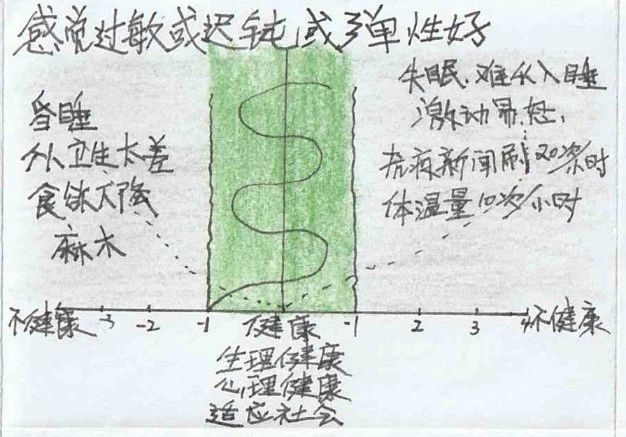 感觉过敏或迟钝或弹性好
昏睡
个人卫生太差
食欲下降
麻木
失眠.难以入睡
激动易怒,
疫情新闻刷20条/时
体温量10次/小时
不健康 -3 -2 -1 健康 1 2 3 4不健康
生理健康
心理健康
适应社会